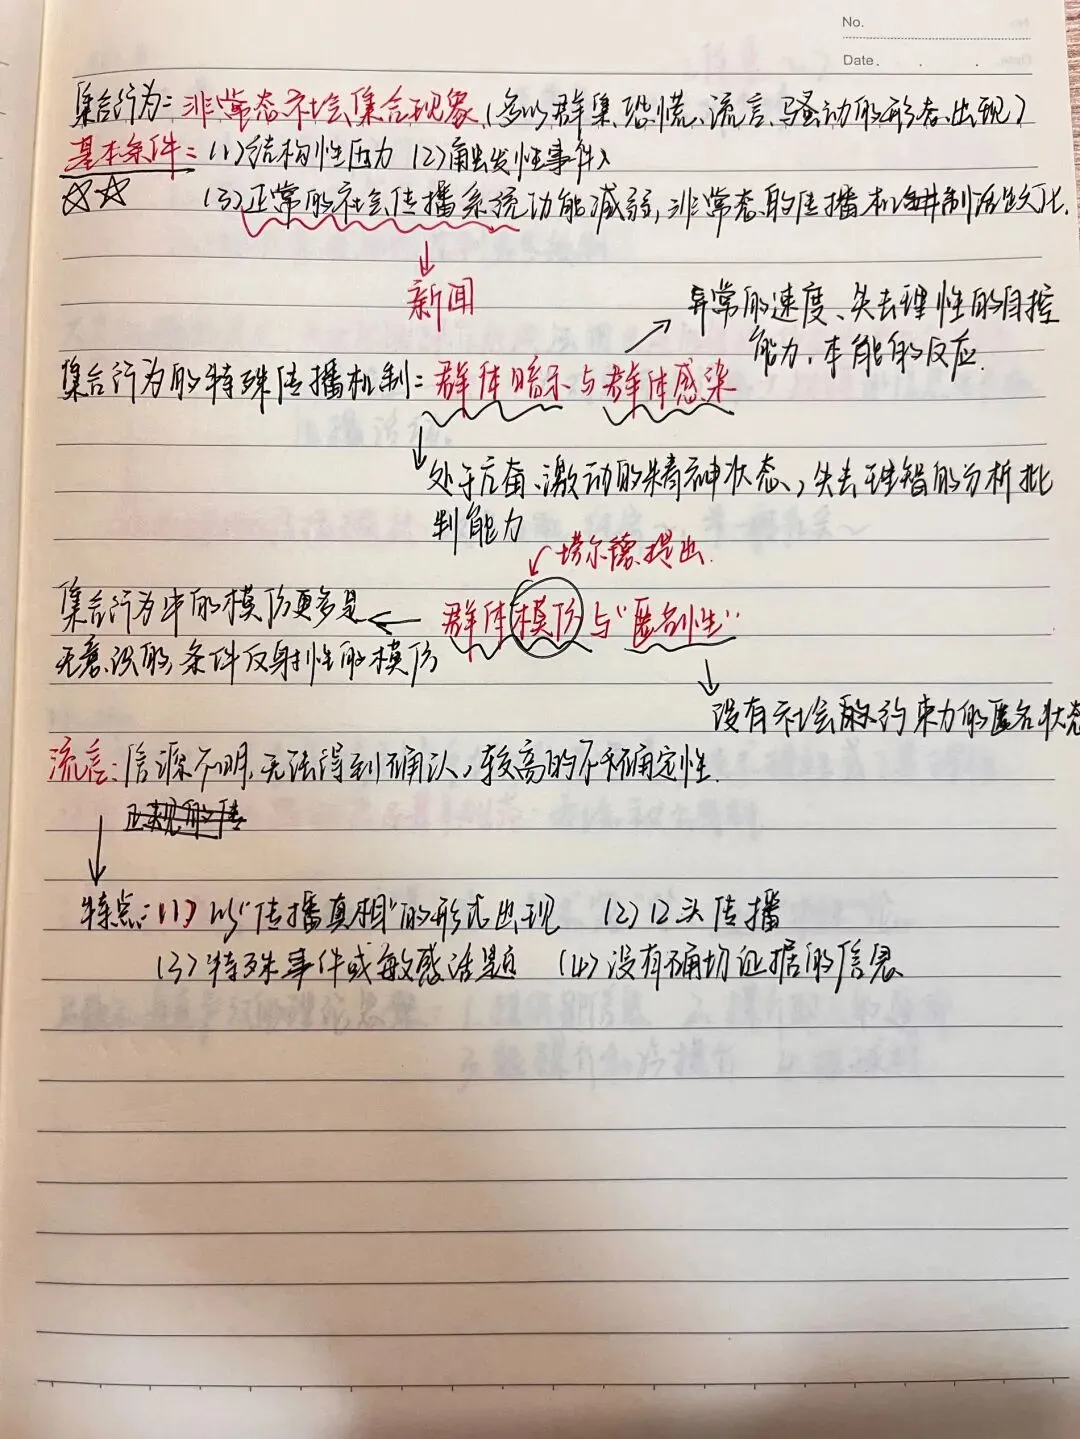 No.
Date . . .
集合行为：非常态社会集合现象（多以群集、恐慌、流言、骚动的形态出现）
基本条件：(1)结构性压力 (2)触发性事件
(3)正常的社会传播系统功能减弱，非常态的传播机制活跃化.
新闻
异常的速度、失去理性的自控
能力.本能的反应.
集合行为的特殊传播机制：群体暗示与群体感染
处于亢奋、激动的精神状态，失去理智的分析批
判能力
塔尔德提出.
集合行为中的模仿更多是
群体模仿与“匿名性”
无意识的，条件反射性的模仿
没有社会约束力的匿名状态
流言：信源不明，无法得到确认，较高的不确定性.
特点：(1)以“传播真相”的形式出现 (2)口头传播
(3)特殊事件或敏感话题 (4)没有确切证据的信息